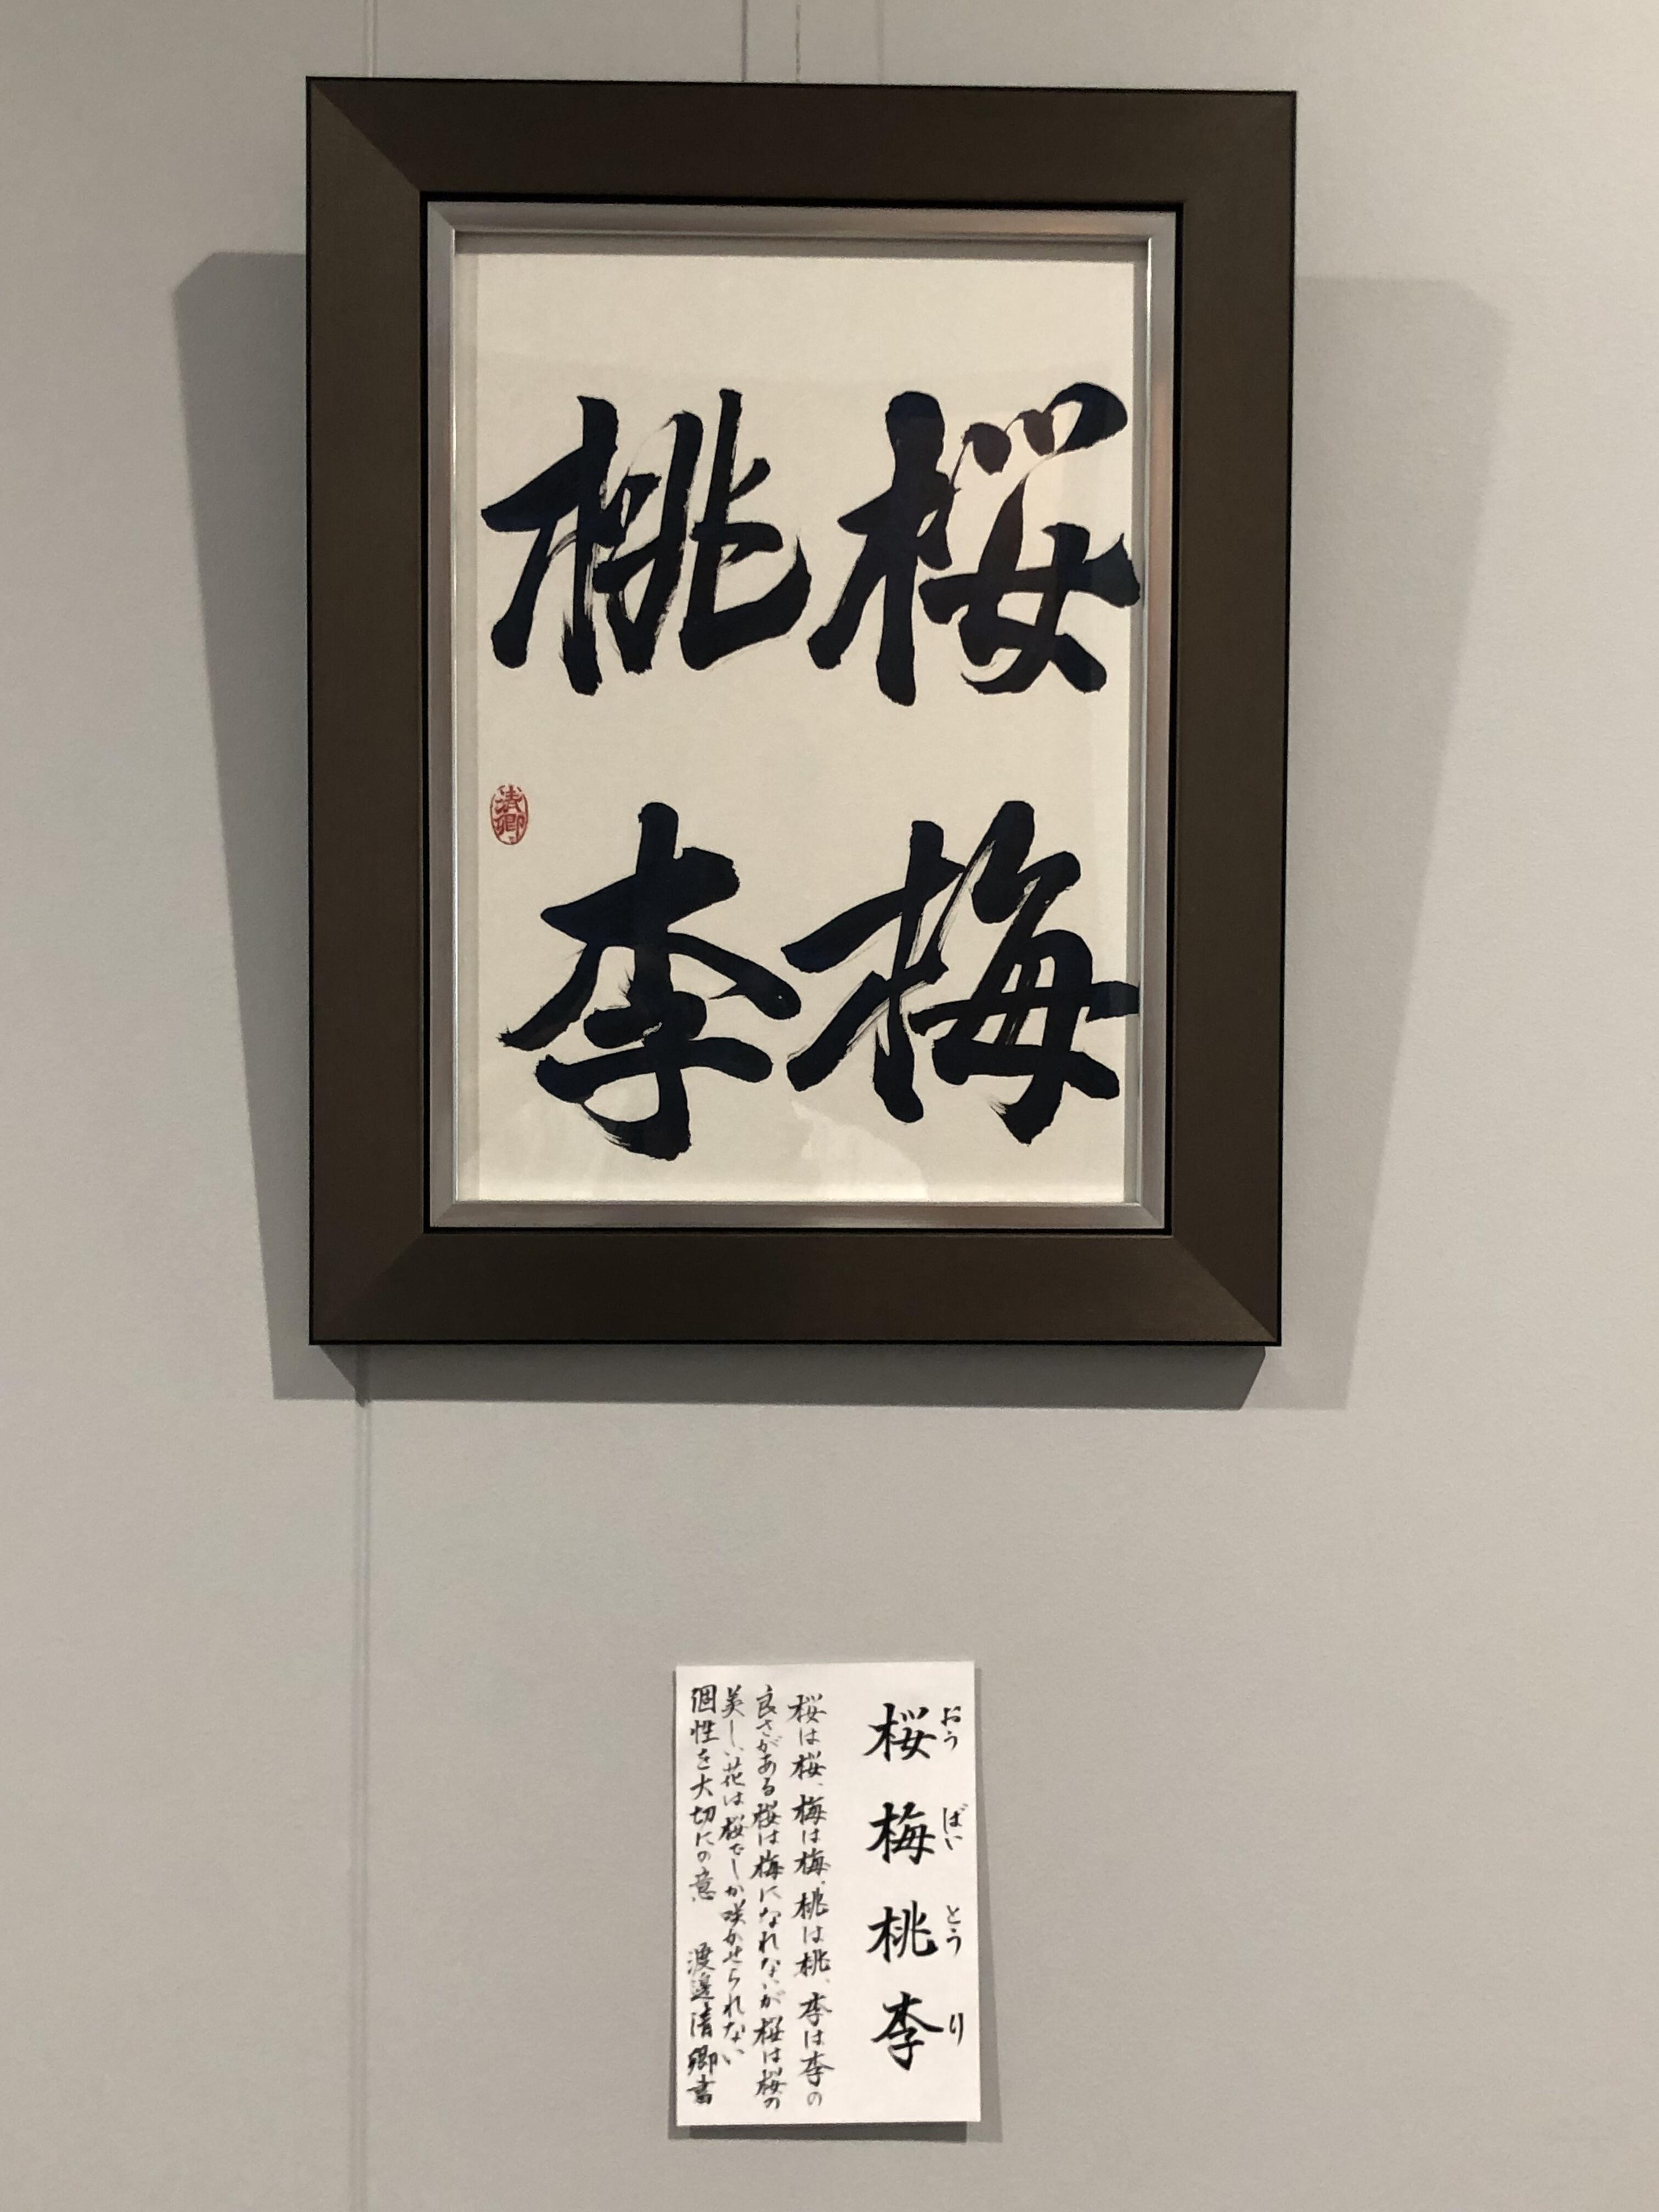 桜梅
桃李
清卿
桜梅桃李
おうばいとうり
桜は桜、梅は梅、桃は桃、李は李の
良さがある桜は梅になれないが桜は桜の
美しい花は桜でしか咲かせられない
個性を大切にの意 渡邉清卿書